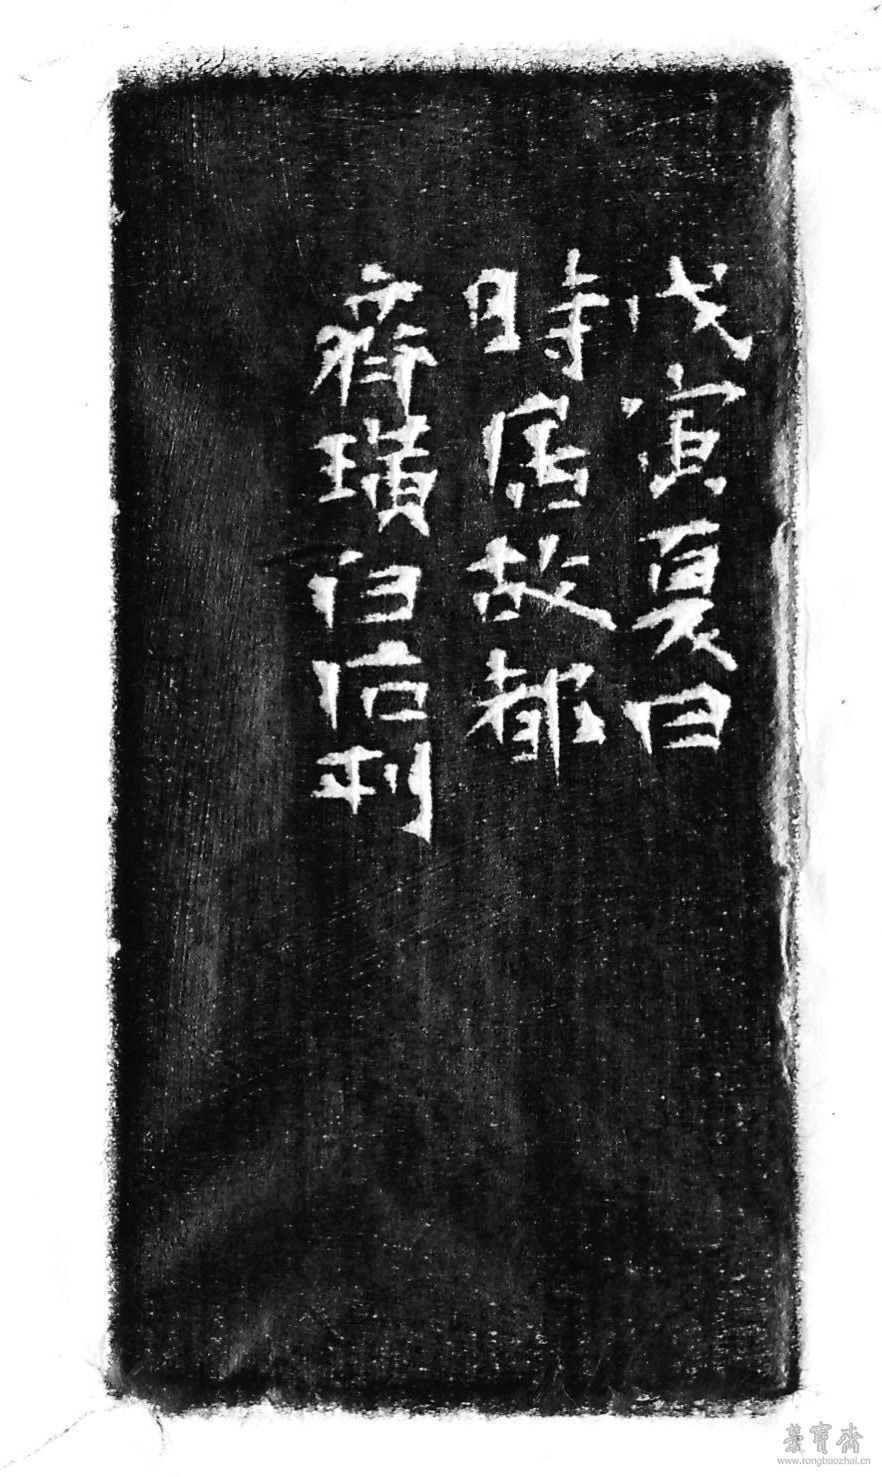 戊寅夏日
時居故都
齊璜白石刊
榮寶齋
www.rongbaozhai.cn